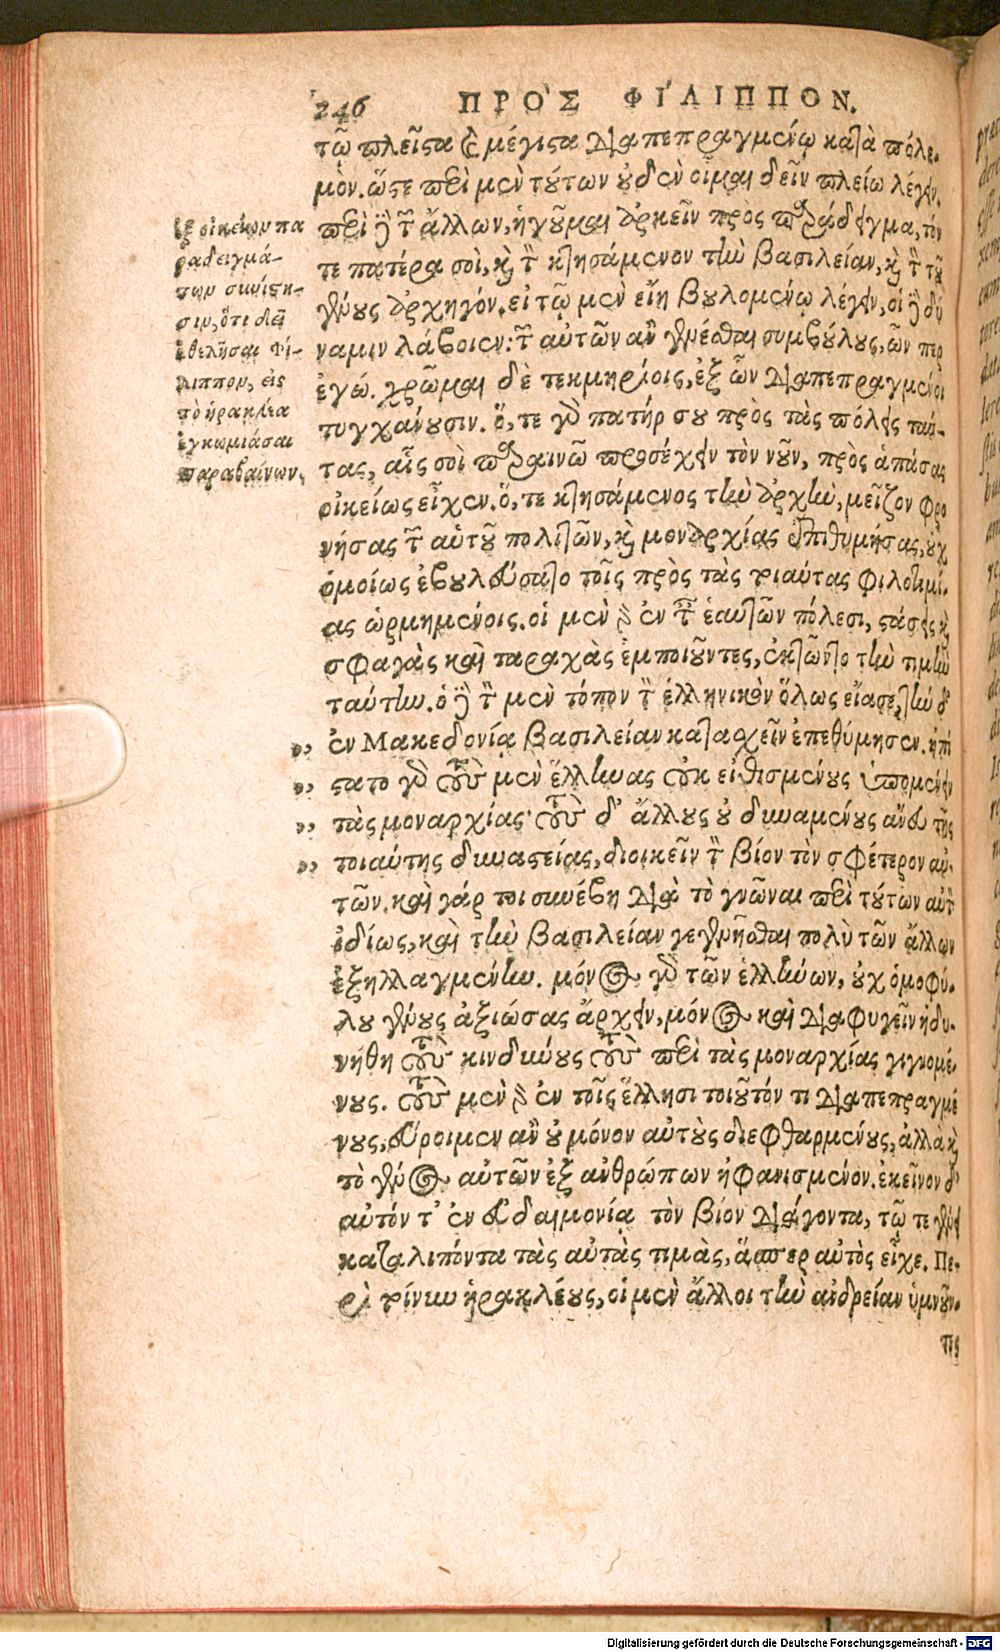 246 ΠΡΟ᾽Σ ΦΙ´ΛΙΠΠΟΝ.
τῷ πλεῖστα καὶ μέγιστα διαπεπραγμένῳ κατὰ πόλε-
μον. ὥστε περὶ μὲν τούτων οὐδὲν οἶμαι δεῖν πλείω λέγειν.
περὶ δὲ τῶν ἄλλων, ἡγοῦμαι ἀρκεῖν πρὸς παράδειγμα, τόν
τε πατέρα σοὶ, καὶ τὸν κτησάμενον τὴν βασιλείαν, καὶ τὸν τοῦ
γένους ἀρχηγόν. εἰ τῷ μὲν εἴη βουλομένῳ λέγειν, οἱ δὲ δύ
ναμιν λάβοιεν: τῶν αὐτῶν ἂν γενέσθαι συμβούλους, ὧν περ
ἐγώ. χρῶμαι δὲ τεκμηρίοις, ἐξ ὧν διαπεπραγμένοι
τυγχάνουσιν. ὅ, τε γὰρ πατήρ σου πρὸς τὰς πόλεις ταύ-
τας, αἷς σοὶ παραινῶ προσέχειν τὸν νοῦν, πρὸς ἁπάσας
οἰκείως εἶχεν. ὅ, τε κτησάμενος τὴν ἀρχὴν, μεῖζον φρο
νήσας τῶν αὑτοῦ πολιτῶν, καὶ μοναρχίας ἐπιθυμήσας, οὐχ
ὁμοίως ἐβουλεύσατο τοῖς πρὸς τὰς τοιαύτας φιλοτιμί-
ας ὡρμημένοις. οἱ μὲν γὰρ ἐν ταῖς ἑαυτῶν πόλεσι, στάσεις καὶ
σφαγὰς καὶ ταραχὰς ἐμποιοῦντες, ἐκτῶντο τὴν τιμὴν
ταύτην. ὁ δὲ τὸν μὲν τόπον τὸν ἑλληνικὸν ὅλως εἴασε, τὴν δ᾽
,, ἐν Μακεδονίᾳ βασιλείαν κατασχεῖν ἐπεθύμησεν. ἠπί
,, στατο γὰρ τοὺς μὲν ἕλληνας οὐκ εἰθισμένους ὑπομένειν
,, τὰς μοναρχίας· τοὺς δ᾽ ἄλλους οὐ δυναμένους ἄνευ τῆς
,, τοιαύτης δυναστείας, διοικεῖν τὸν βίον τὸν σφέτερον αὐ-
τῶν. καὶ γάρ τοι συνέβη διὰ τὸ γνῶναι περὶ τούτων αὐτὸν
ἰδίως, καὶ τὴν βασιλείαν γεγενῆσθαι πολὺ τῶν ἄλλων
ἐξηλλαγμένην. μόνος γὰρ τῶν ἑλλήνων, οὐχ ὁμοφύ-
λου γένους ἀξιώσας ἄρχειν, μόνος καὶ διαφυγεῖν ἠδυ-
νήθη τοὺς κινδύνους τοὺς περὶ τὰς μοναρχίας γιγνομέ-
νους. τοὺς μὲν γὰρ ἐν τοῖς ἕλλησι τοιοῦτόν τι διαπεπραγμέ
νους, εὕροιμεν ἂν οὐ μόνον αὐτοὺς διεφθαρμένους, ἀλλὰ καὶ
τὸ γένος αὐτῶν ἐξ ἀνθρώπων ἠφανισμένον. ἐκεῖνον δ᾽
αὐτόν τ᾽ ἐν εὐδαιμονίᾳ τὸν βίον διάγοντα, τῷ τε γένει
καταλιπόντα τὰς αὐτὰς τιμὰς, ἅσπερ αὐτὸς εἶχε. Πε-
ρὶ τοίνυν ἡρακλέους, οἱ μὲν ἄλλοι τὴν ἀνδρείαν ὑμνοῦν-
οἰκείων πα
ραδειγμά-
των συνίστη-
σιν, ὅτι δεῖ
ἐθελῆσαι Φί-
λιππον, εἰς
τὸ ἡρακλέα
ἐγκωμιάσαι
παραβαίνων.
Digitalisierung gefördert durch die Deutsche Forschungsgemeinschaft - DFG